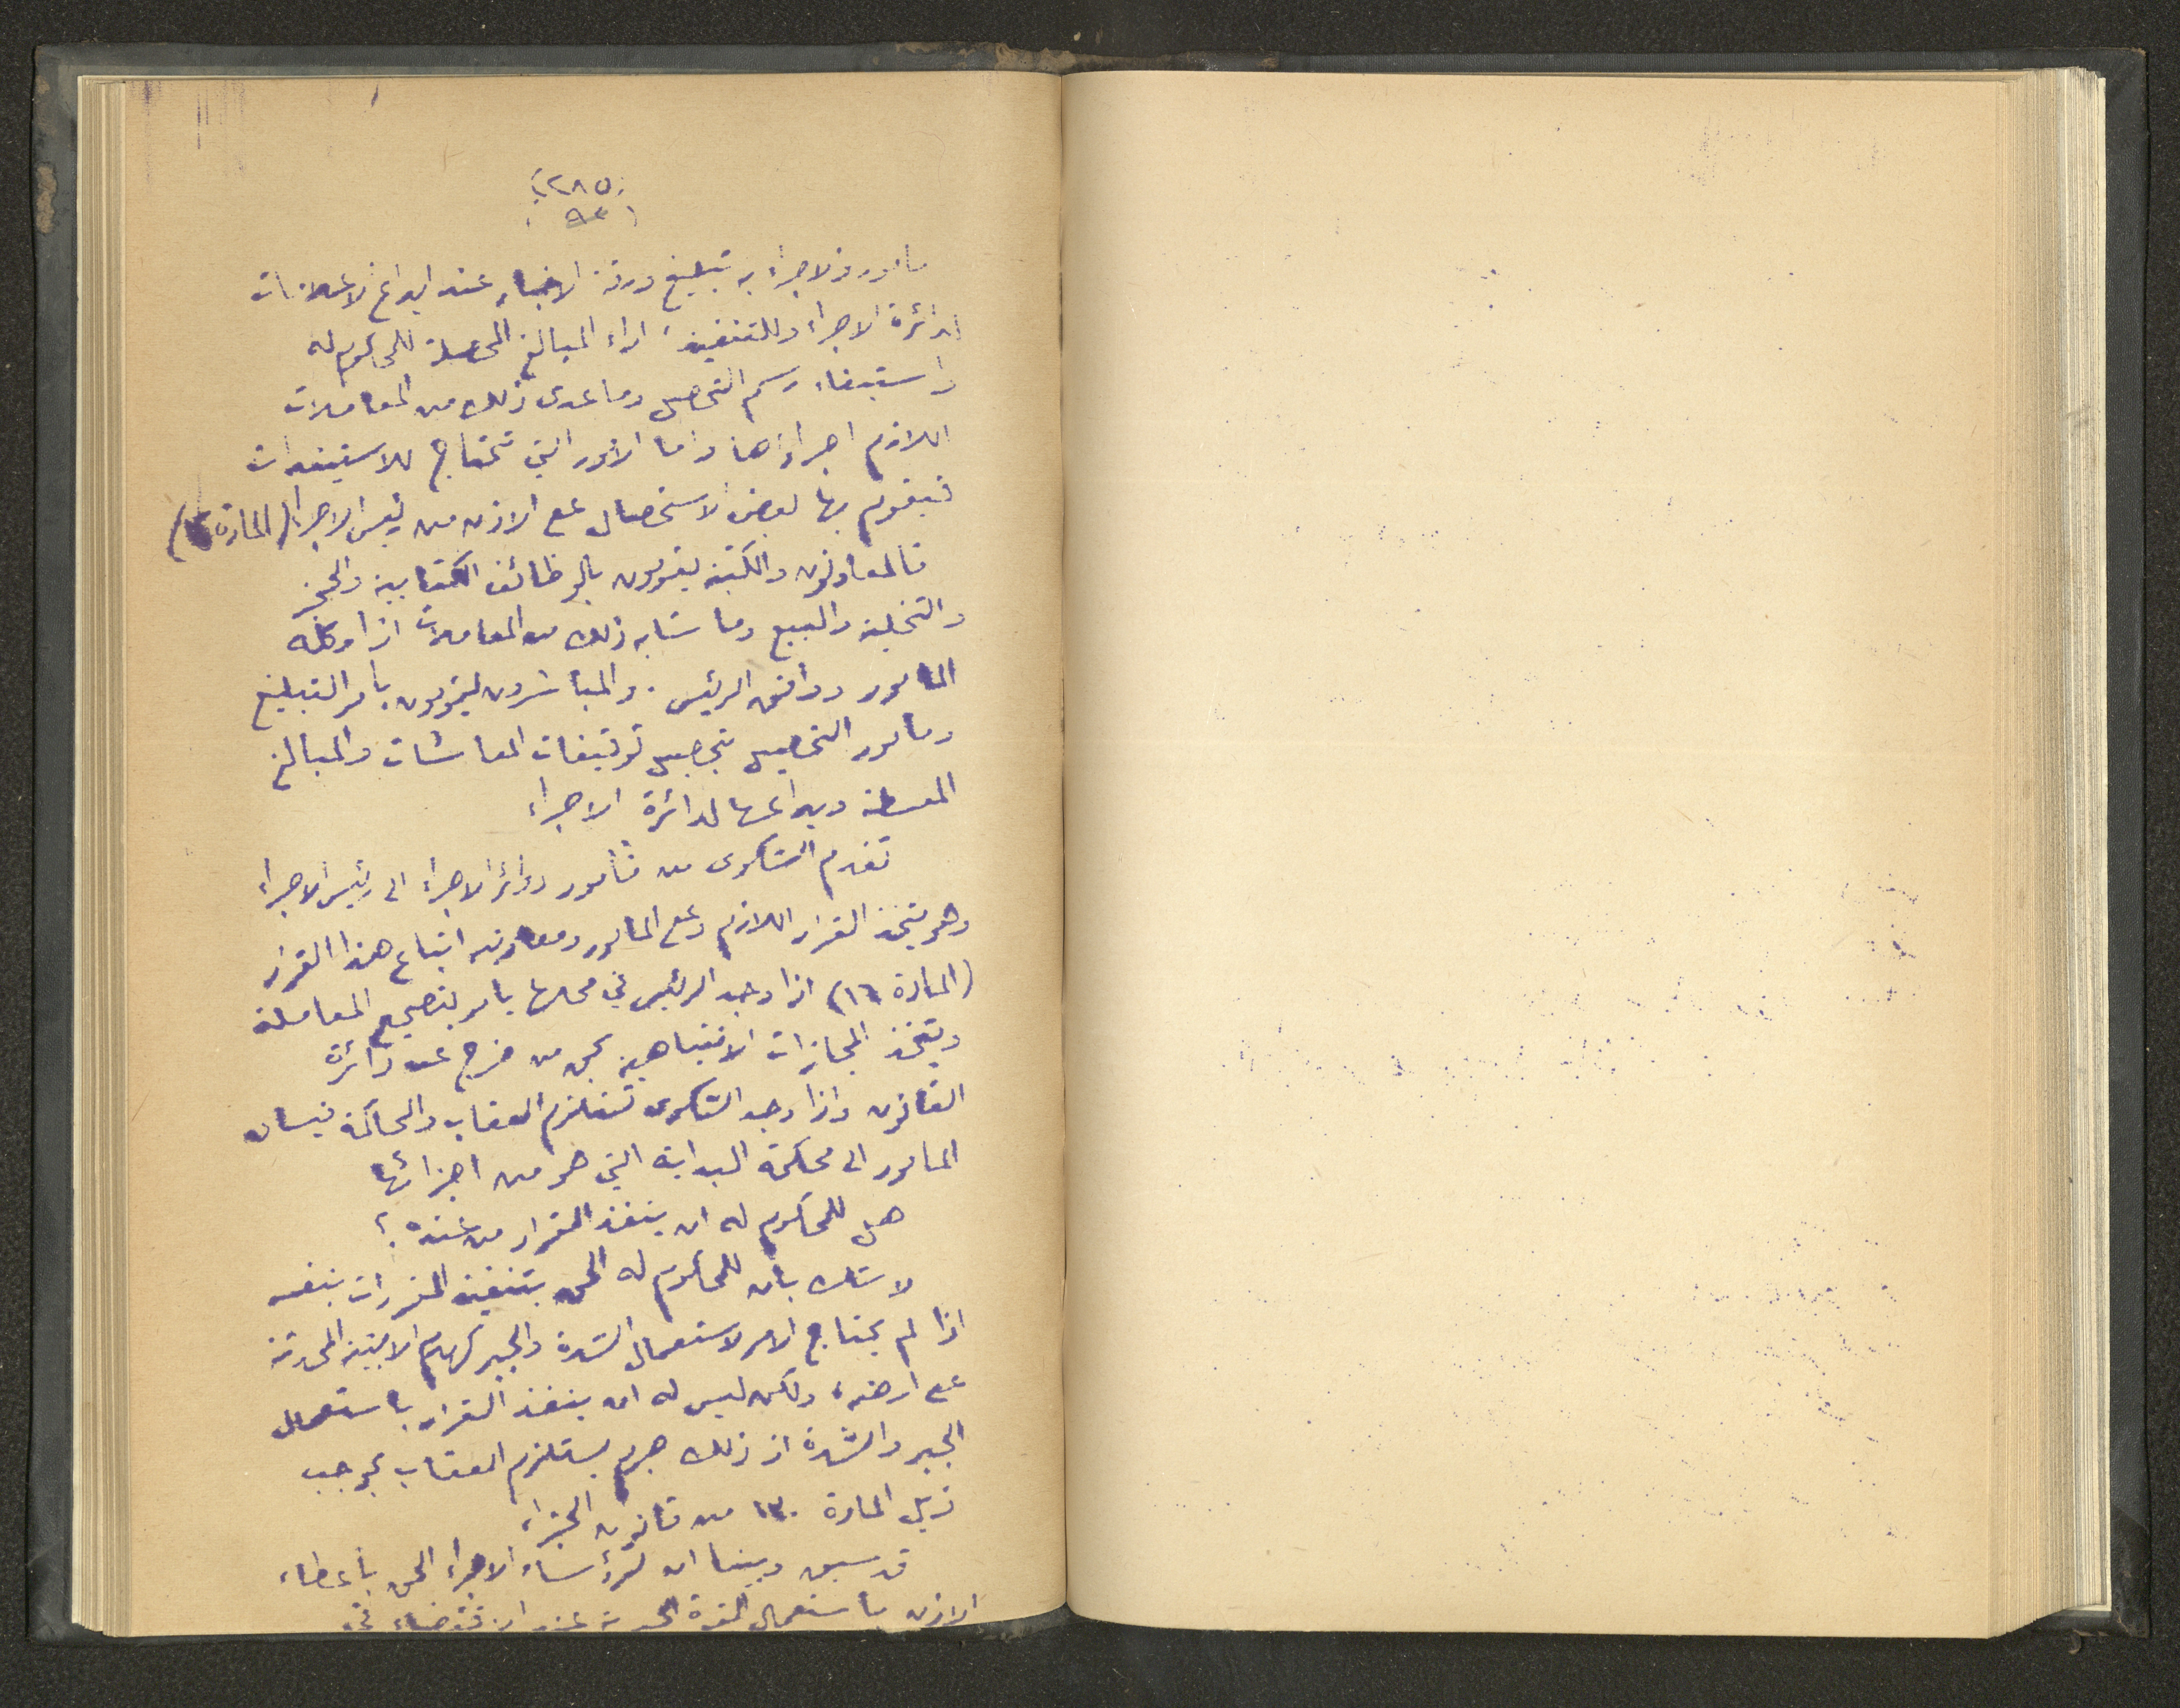 ٢٨٥
٩٣
مأمورو الاجراء بتبليغ ورقة الاخبار عند ايداع الاعلامات
لدائرة الاجراء وللتنفيذ، اداء المبالغ المحصلة للمحكوم له
واستيفاء رسم التحصيل وما عدى ذلك من المعاملات
اللازم اجراؤها واما الامور التي تحتاج للاستيذان
فيقوم بها بعض الاستحصال على الاذن من رئيس الاجراء (المادة
فالمعاونون والكتبة يقومون بالوظائف الكتابية والحجز
والتخلية والبيع وما شابه ذلك من المعاملات اذا وكله
المامور ووافق الرئيس. والمباشرون يقومون بامر التبليغ
ومامور التحصيل بتحصيل توقيفات المعاشات والمبالغ
المقسطة ويداعها لدائرة الاجراء
تقدم الشكوى من مأمور دوائر الاجراء الى رئيس الاجراء
وهو يتخذ القرار اللازم وعلى المامور ومعاونيه اتباع هذا القرار
(المادة ١٦) اذا وجد الرئيس في محلها يامر بتصحيح المعاملة
ويتخذ المجازات الانتباهية بحق من خرج عن دائرة
القانون واذا وجد الشكوى تستلزم العقاب والمحاكمة فيساق
المامور الى محكمة البداية التي هو من اجزائها
هل للمحكوم له ان ينفذ القرار من عنده؟
لا شك بان للمحكوم له الحق بتنفيذ المقررات بنفسه
اذا لم يحتاج الامر لاستعمال الشدة والجبر كهدم الابنية المحدثة
على ارضه، ولكن ليس له ان ينفذ القرار باستعمال
الجبر والشدة اذ ذلك جرم يستلزم العقاب بموجب
ذيل المادة ١٣٠ من قانون الجزاء
قد سبق وبينا ان لرؤساء الاجراء الحق باعطاء
الاذن باستعمال القوة الجبرية عند الاقتضاء في